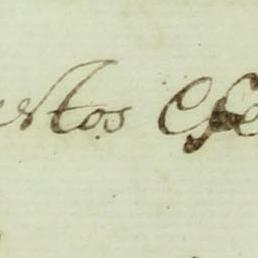 estos Efe